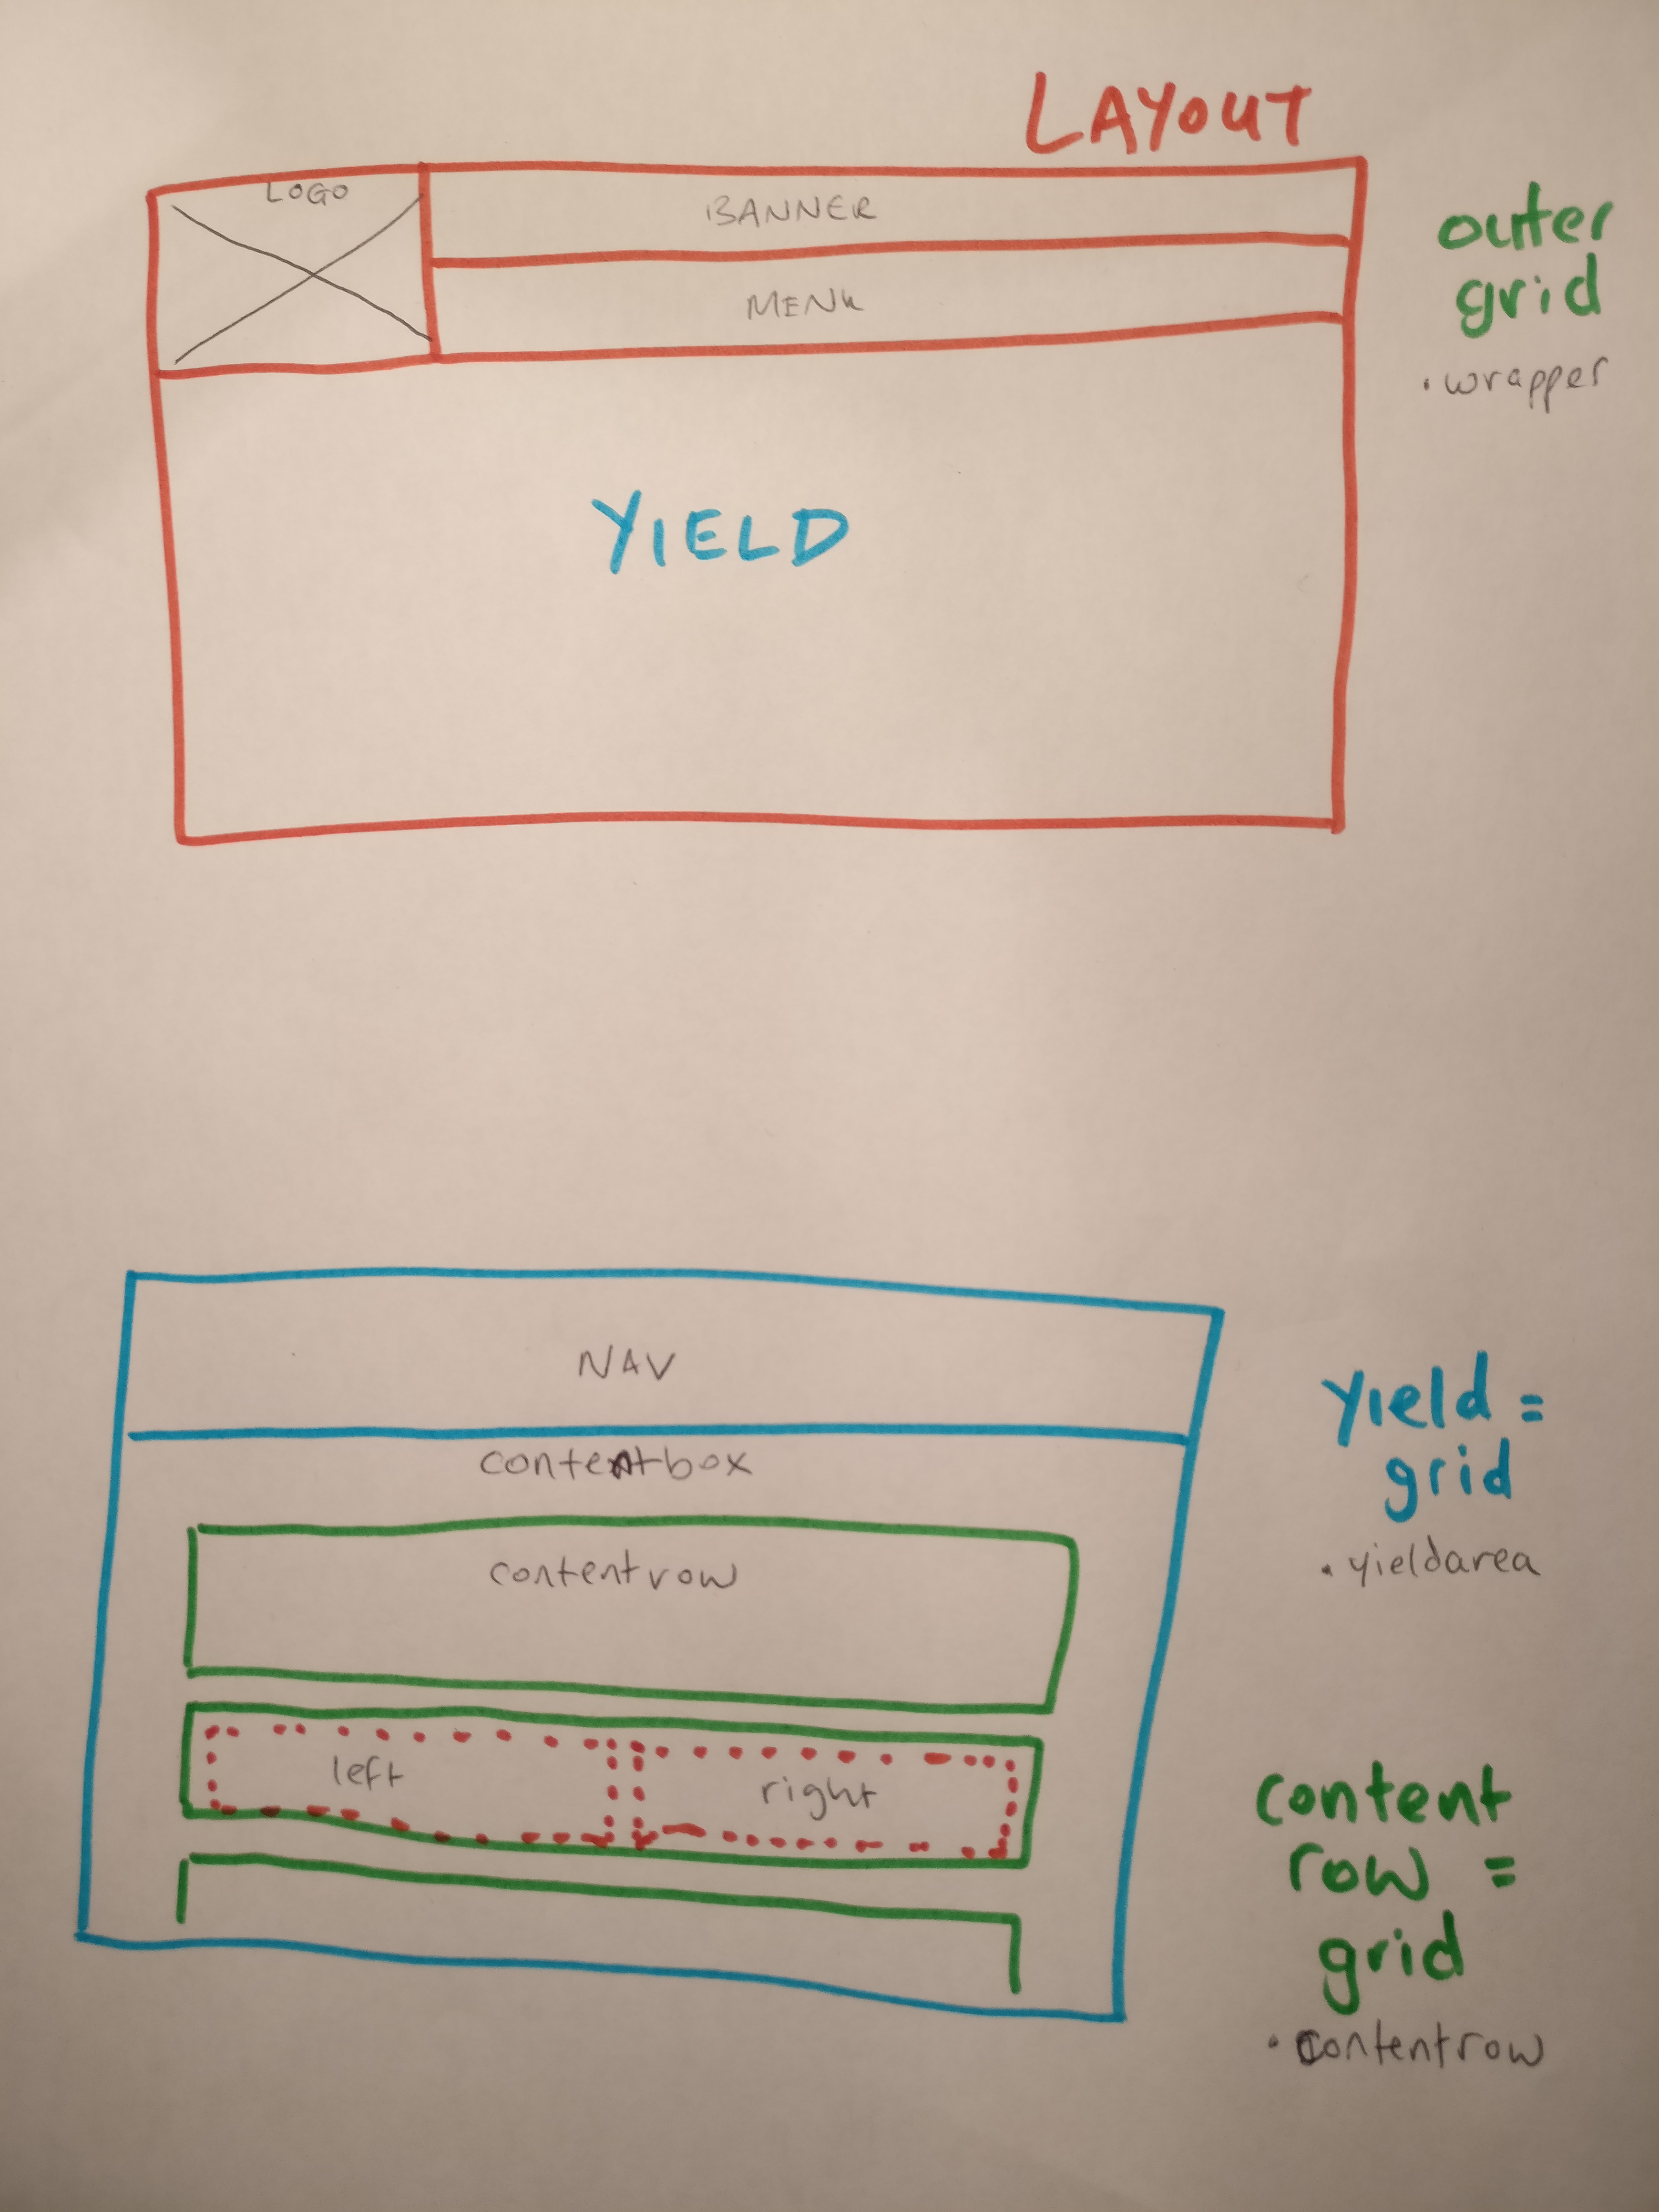 LAYOUT
LOGO
BANNER
MENU
outer
grid
.wrapper
YIELD
NAV
contentbox
contentrow
left
right
yield =
grid
.yieldarea
content
row =
grid
.contentrow